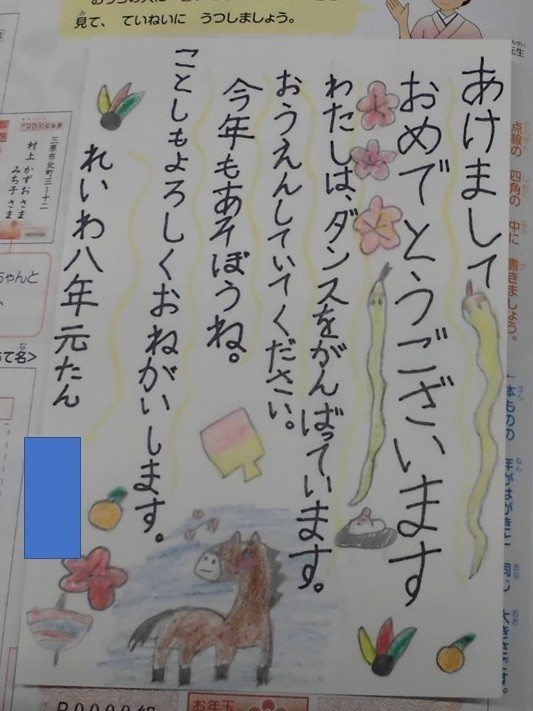 見て、ていねいに うつしましょう。
あけまして
おめでとうございます
わたしは、ダンスをがんばっています。
おうえんしていてください。
今年もあそぼうね。
ことしもよろしくおねがいします。
れいわ八年元たん
点線の 四角の 中に 書きましょう。
三原市北町三ー十二
村上 かずおさま
みち子さま
ちゃんと
て名>
お年玉